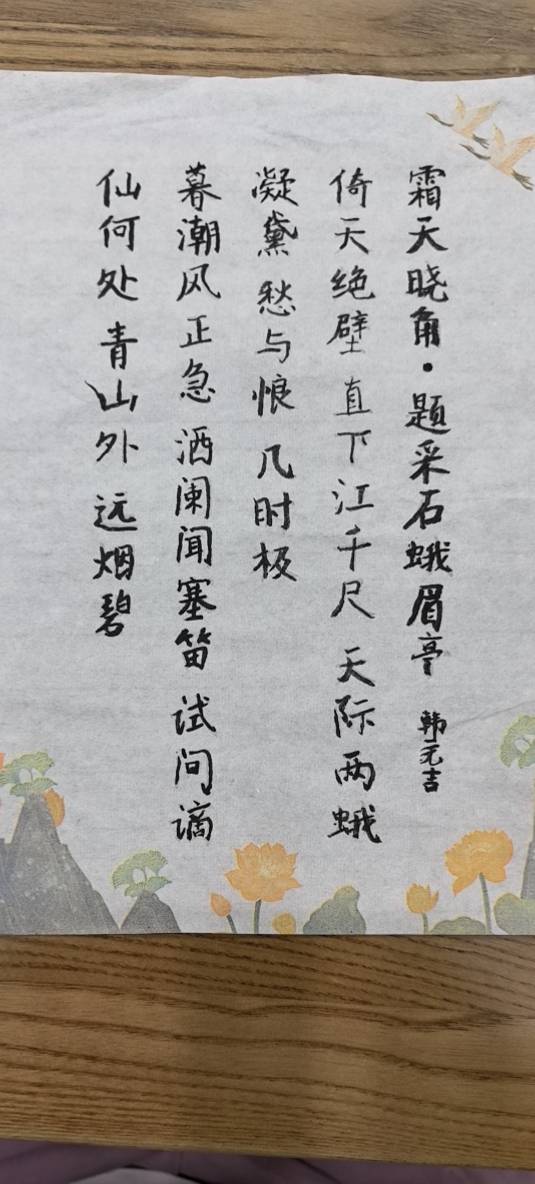 霜天晓角·题采石蛾眉亭 韩元吉
倚天绝壁 直下江千尺 天际两蛾
凝黛 愁与恨 几时极
暮潮风正急 酒阑闻塞笛 试问谪
仙何处 青山外 远烟碧